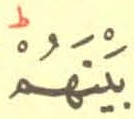 بَيْنَهُمْ ؕ